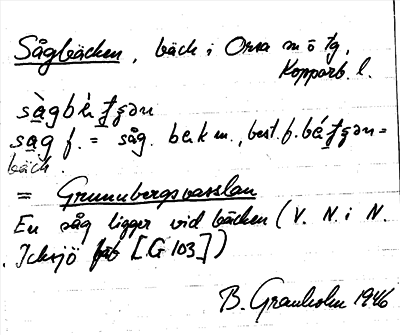 Sågbäcken, bäck i Orsa
Kopparb. l.
sàgbè
sag f. = såg. bekm., best. f.
bäck.
= Grunnbergsvasslan
En såg ligger vid bäcken (V. N. i N.
Icksjö [G 103])
B. Granholm 1946